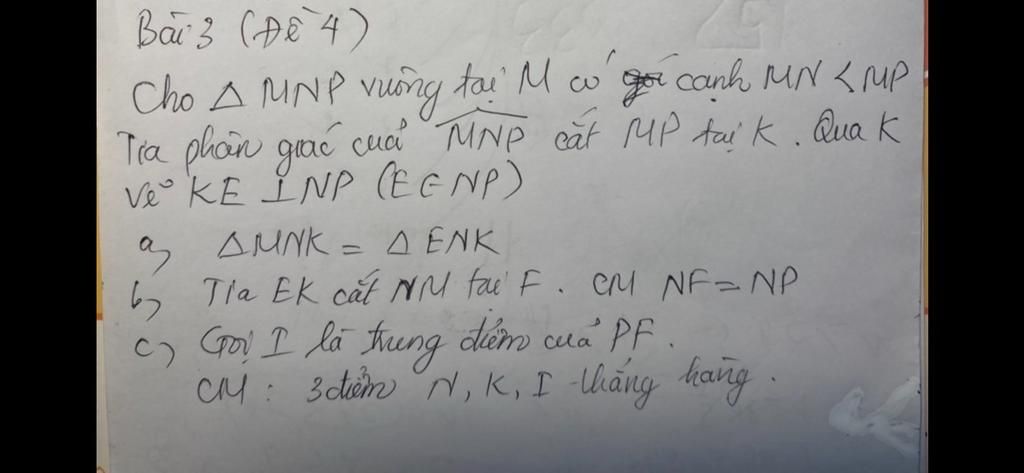 Bài 3 (Đề 4)
Cho Δ MNP vuông tại M có cạnh MN < MP
Tia phân giác của MNP cắt MP tại K. Qua K
vẽ KE ⊥ NP (E ∈ NP)
a, ΔMNK = Δ ENK
b, Tia EK cắt NM tại F. CM NF = NP
c, Gọi I là trung điểm của PF.
CM : 3 điểm N, K, I thẳng hàng.